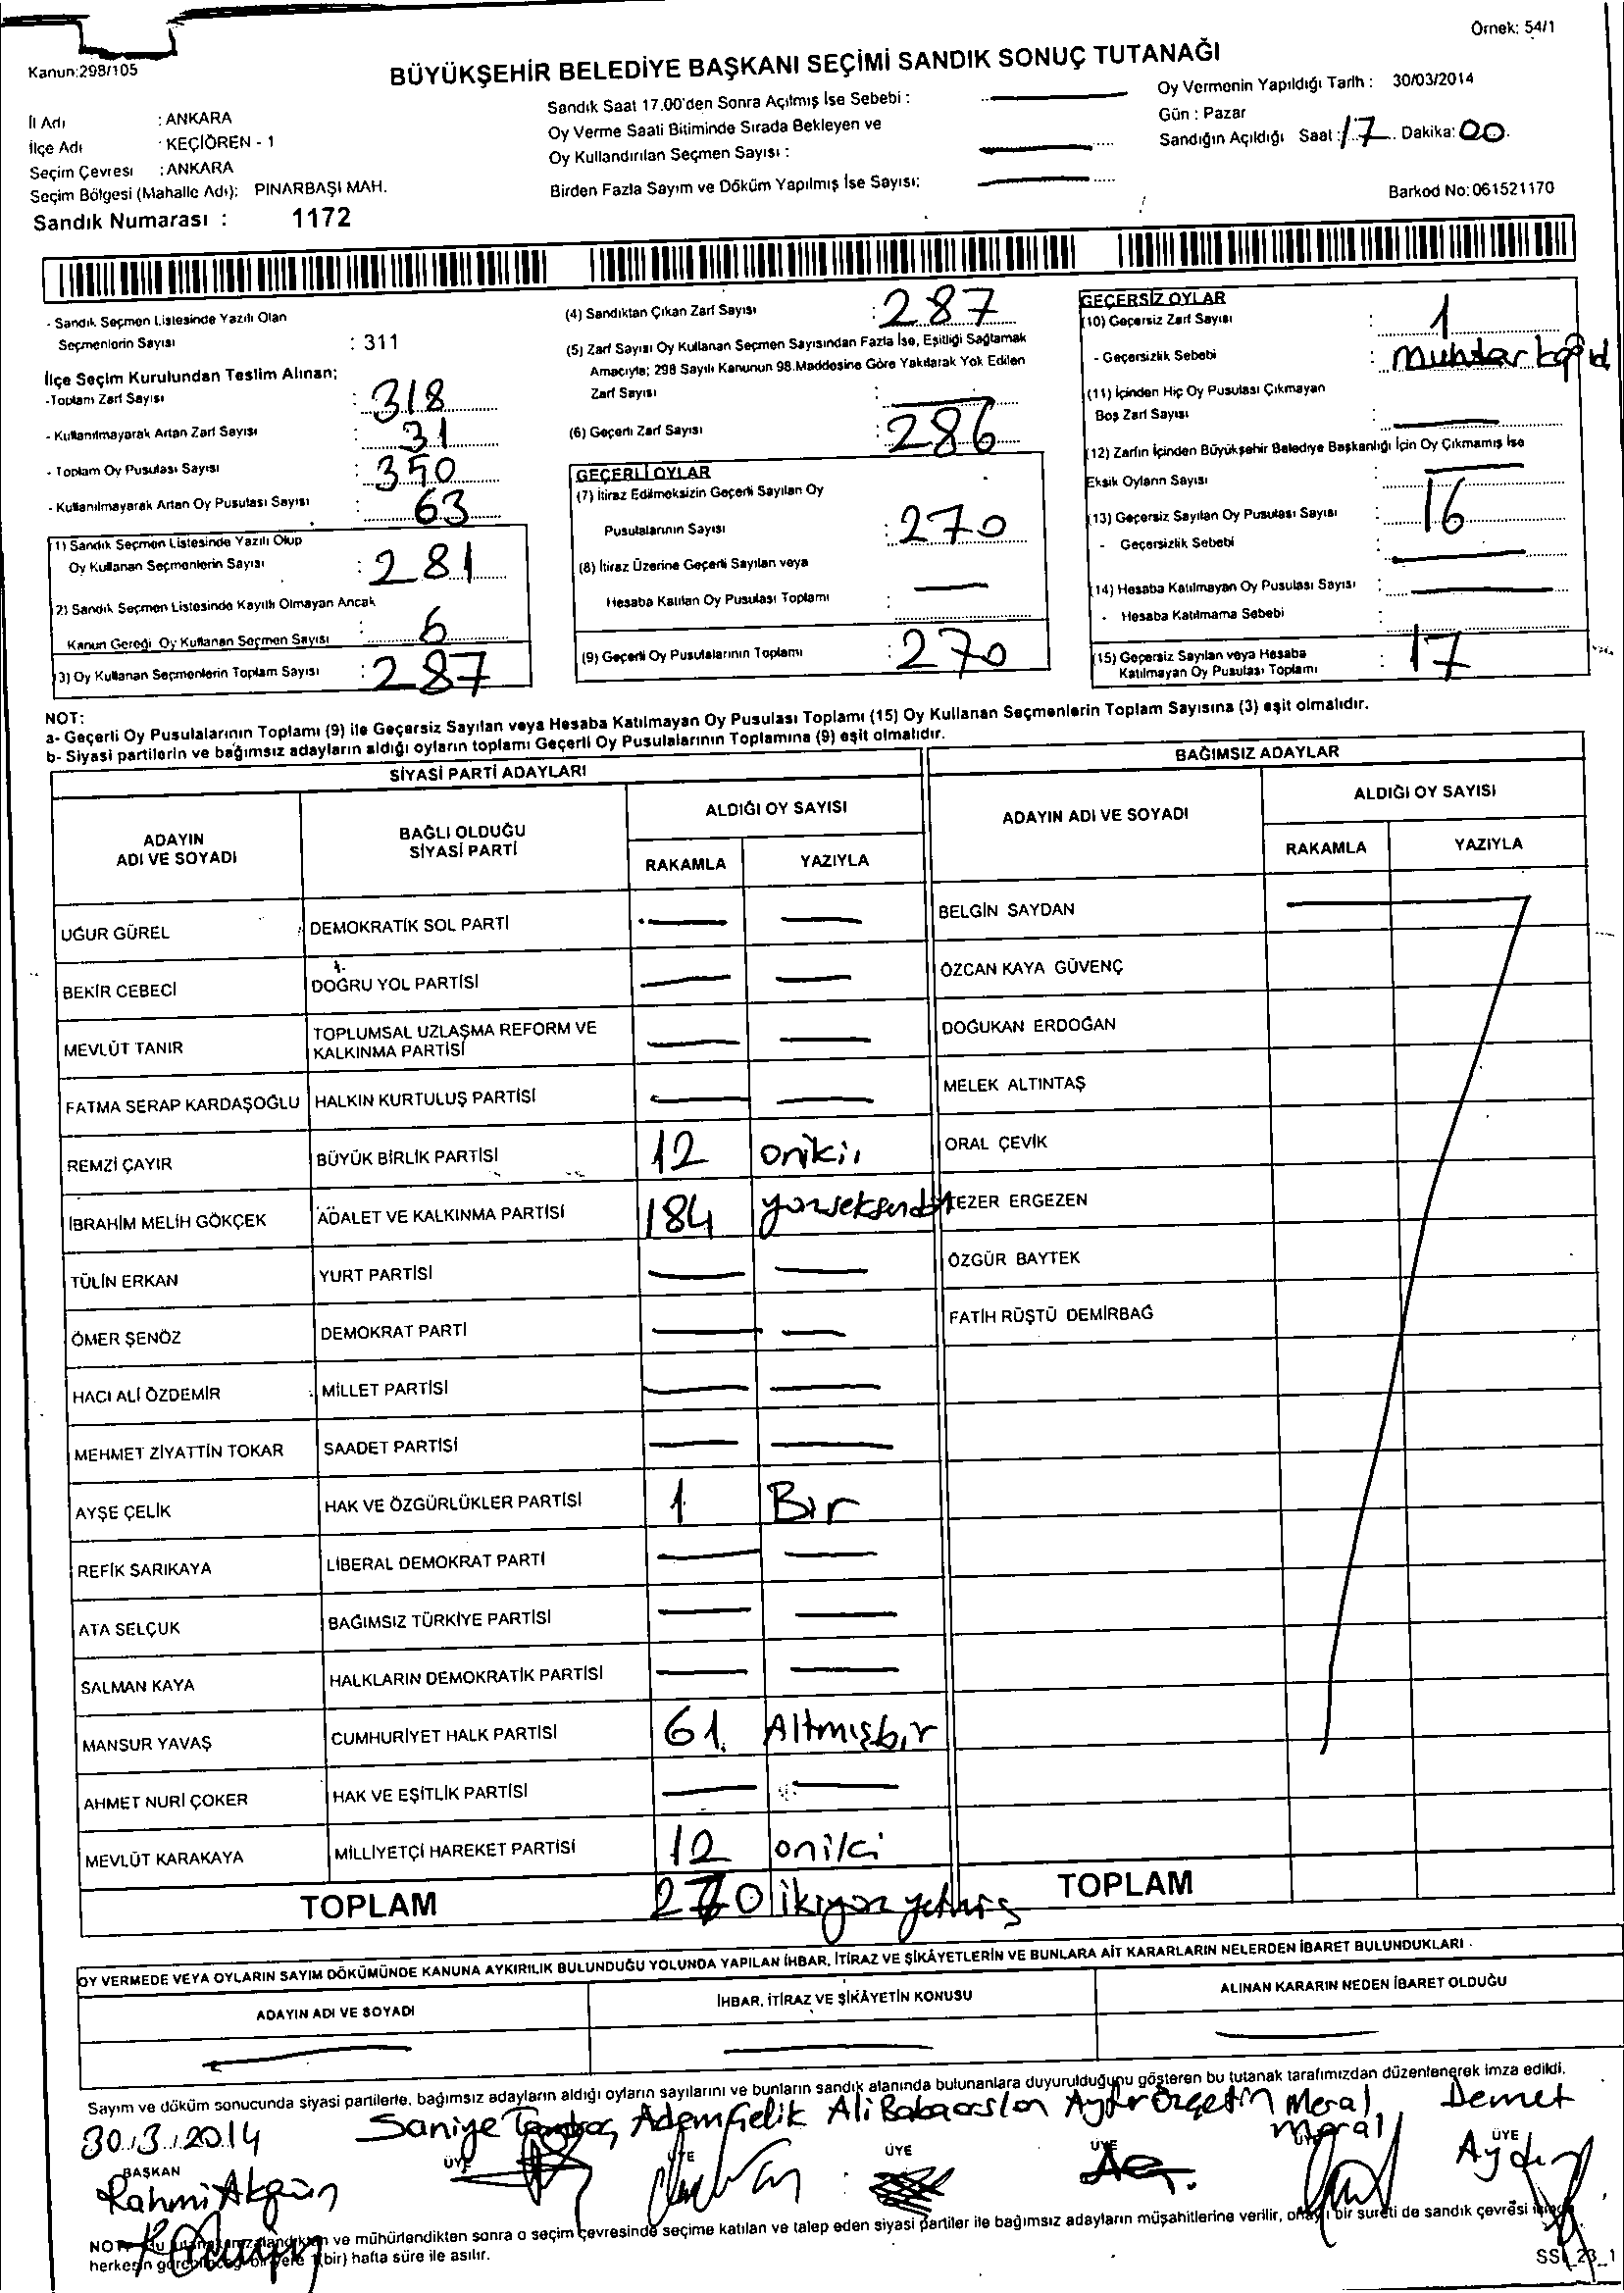 Örnek: 54/1
Kanun:298/105
BÜYÜKŞEHİR BELEDİYE BAŞKANI SEÇİMİ SANDIK SONUÇ TUTANAĞI
İl Adı : ANKARA
İlçe Adı : KEÇİÖREN - 1
Seçim Çevresi : ANKARA
Seçim Bölgesi (Mahalle Adı); PINARBAŞI MAH.
Sandık Numarası : 1172
Sandık Saat 17.00'den Sonra Açılmış İse Sebebi :
Oy Verme Saati Bitiminde Sırada Bekleyen ve
Oy Kullandırılan Seçmen Sayısı :
Birden Fazla Sayım ve Döküm Yapılmış İse Sayısı;
Oy Vermenin Yapıldığı Tarih : 30/03/2014
Gün : Pazar
Sandığın Açıldığı Saat : 17 Dakika: 00
Barkod No: 061521170
- Sandık Seçmen Listesinde Yazılı Olan
Seçmenlerin Sayısı : 311
İlçe Seçim Kurulundan Teslim Alınan;
-Toplam Zarf Sayısı : 318
- Kullanılmayarak Artan Zarf Sayısı : 31
- Toplam Oy Pusulası Sayısı : 350
- Kullanılmayarak Artan Oy Pusulası Sayısı : 63
(1) Sandık Seçmen Listesinde Yazılı Olup
Oy Kullanan Seçmenlerin Sayısı : 281
2) Sandık Seçmen Listesinde Kayıtlı Olmayan Ancak
Kanun Gereği Oy Kullanan Seçmen Sayısı : 6
(3) Oy Kullanan Seçmenlerin Toplam Sayısı : 287
(4) Sandıktan Çıkan Zarf Sayısı : 287
(5) Zarf Sayısı Oy Kullanan Seçmen Sayısından Fazla İse, Eşitliği Sağlamak
Amacıyla; 298 Sayılı Kanunun 98.Maddesine Göre Yakılarak Yok Edilen
Zarf Sayısı :
(6) Geçerli Zarf Sayısı : 286
GEÇERLİ OYLAR
(7) İtiraz Edilmeksizin Geçerli Sayılan Oy
Pusulalarının Sayısı : 270
(8) İtiraz Üzerine Geçerli Sayılan veya
Hesaba Katılan Oy Pusulası Toplamı :
(9) Geçerli Oy Pusulalarının Toplamı : 270
GEÇERSİZ OYLAR
(10) Geçersiz Zarf Sayısı : 1
- Geçersizlik Sebebi : muhtar
(11) İçinden Hiç Oy Pusulası Çıkmayan
Boş Zarf Sayısı :
(12) Zarfın İçinden Büyükşehir Belediye Başkanlığı İçin Oy Çıkmamış İse
Eksik Oyların Sayısı
(13) Geçersiz Sayılan Oy Pusulası Sayısı : 16
- Geçersizlik Sebebi :
(14) Hesaba Katılmayan Oy Pusulası Sayısı :
- Hesaba Katılmama Sebebi :
(15) Geçersiz Sayılan veya Hesaba
Katılmayan Oy Pusulası Toplamı : 17
NOT:
a- Geçerli Oy Pusulalarının Toplamı (9) ile Geçersiz Sayılan veya Hesaba Katılmayan Oy Pusulası Toplamı (15) Oy Kullanan Seçmenlerin Toplam Sayısına (3) eşit olmalıdır.
b- Siyasi partilerin ve bağımsız adayların aldığı oyların toplamı Geçerli Oy Pusulalarının Toplamına (9) eşit olmalıdır.
SİYASİ PARTİ ADAYLARI
BAĞIMSIZ ADAYLAR
ADAYIN ADI VE SOYADI
BAĞLI OLDUĞU SİYASİ PARTİ
ALDIĞI OY SAYISI
RAKAMLA YAZIYLA
ADAYIN ADI VE SOYADI
ALDIĞI OY SAYISI
RAKAMLA YAZIYLA
UĞUR GÜREL DEMOKRATİK SOL PARTİ
BELGİN SAYDAN
BEKİR CEBECİ DOĞRU YOL PARTİSİ
ÖZCAN KAYA GÜVENÇ
MEVLÜT TANIR TOPLUMSAL UZLAŞMA REFORM VE KALKINMA PARTİSİ
DOĞUKAN ERDOĞAN
FATMA SERAP KARDAŞOĞLU HALKIN KURTULUŞ PARTİSİ
MELEK ALTINTAŞ
REMZİ ÇAYIR BÜYÜK BİRLİK PARTİSİ 12 oniki
ORAL ÇEVİK
İBRAHİM MELİH GÖKÇEK ADALET VE KALKINMA PARTİSİ 184 yüzseksendört
TEZER ERGEZEN
TÜLİN ERKAN YURT PARTİSİ
ÖZGÜR BAYTEK
ÖMER ŞENÖZ DEMOKRAT PARTİ
FATİH RÜŞTÜ DEMİRBAĞ
HACI ALİ ÖZDEMİR MİLLET PARTİSİ
MEHMET ZİYATTİN TOKAR SAADET PARTİSİ
AYŞE ÇELİK HAK VE ÖZGÜRLÜKLER PARTİSİ 1 Bir
REFİK SARIKAYA LİBERAL DEMOKRAT PARTİ
ATA SELÇUK BAĞIMSIZ TÜRKİYE PARTİSİ
SALMAN KAYA HALKLARIN DEMOKRATİK PARTİSİ
MANSUR YAVAŞ CUMHURİYET HALK PARTİSİ 61. Altmışbir
AHMET NURİ ÇOKER HAK VE EŞİTLİK PARTİSİ
MEVLÜT KARAKAYA MİLLİYETÇİ HAREKET PARTİSİ 12 oniki
TOPLAM 270 ikiyüz yetmiş TOPLAM
OY VERMEDE VEYA OYLARIN SAYIM DÖKÜMÜNDE KANUNA AYKIRILIK BULUNDUĞU YOLUNDA YAPILAN İHBAR, İTİRAZ VE ŞİKÂYETLERİN VE BUNLARA AİT KARARLARIN NELERDEN İBARET BULUNDUKLARI
ADAYIN ADI VE SOYADI İHBAR, İTİRAZ VE ŞİKÂYETİN KONUSU ALINAN KARARIN NEDEN İBARET OLDUĞU
Sayım ve döküm sonucunda siyasi partilerle, bağımsız adayların aldığı oyların sayılarını ve bunların sandık alanında bulunanlara duyurulduğunu gösteren bu tutanak tarafımızdan düzenlenerek imza edildi.
30.3.2014 Saniye Adem Çelik Ali Babaarslan Meral Meral Demet Aydın
BAŞKAN ÜYE ÜYE ÜYE ÜYE ÜYE
Rahmi Akgün
NOT: ve mühürlendikten sonra o seçim çevresinde seçime katılan ve talep eden siyasi partiler ile bağımsız adayların müşahitlerine verilir, bir sureti de sandık çevresi
herkesin bir yere 1(bir) hafta süre ile asılır.